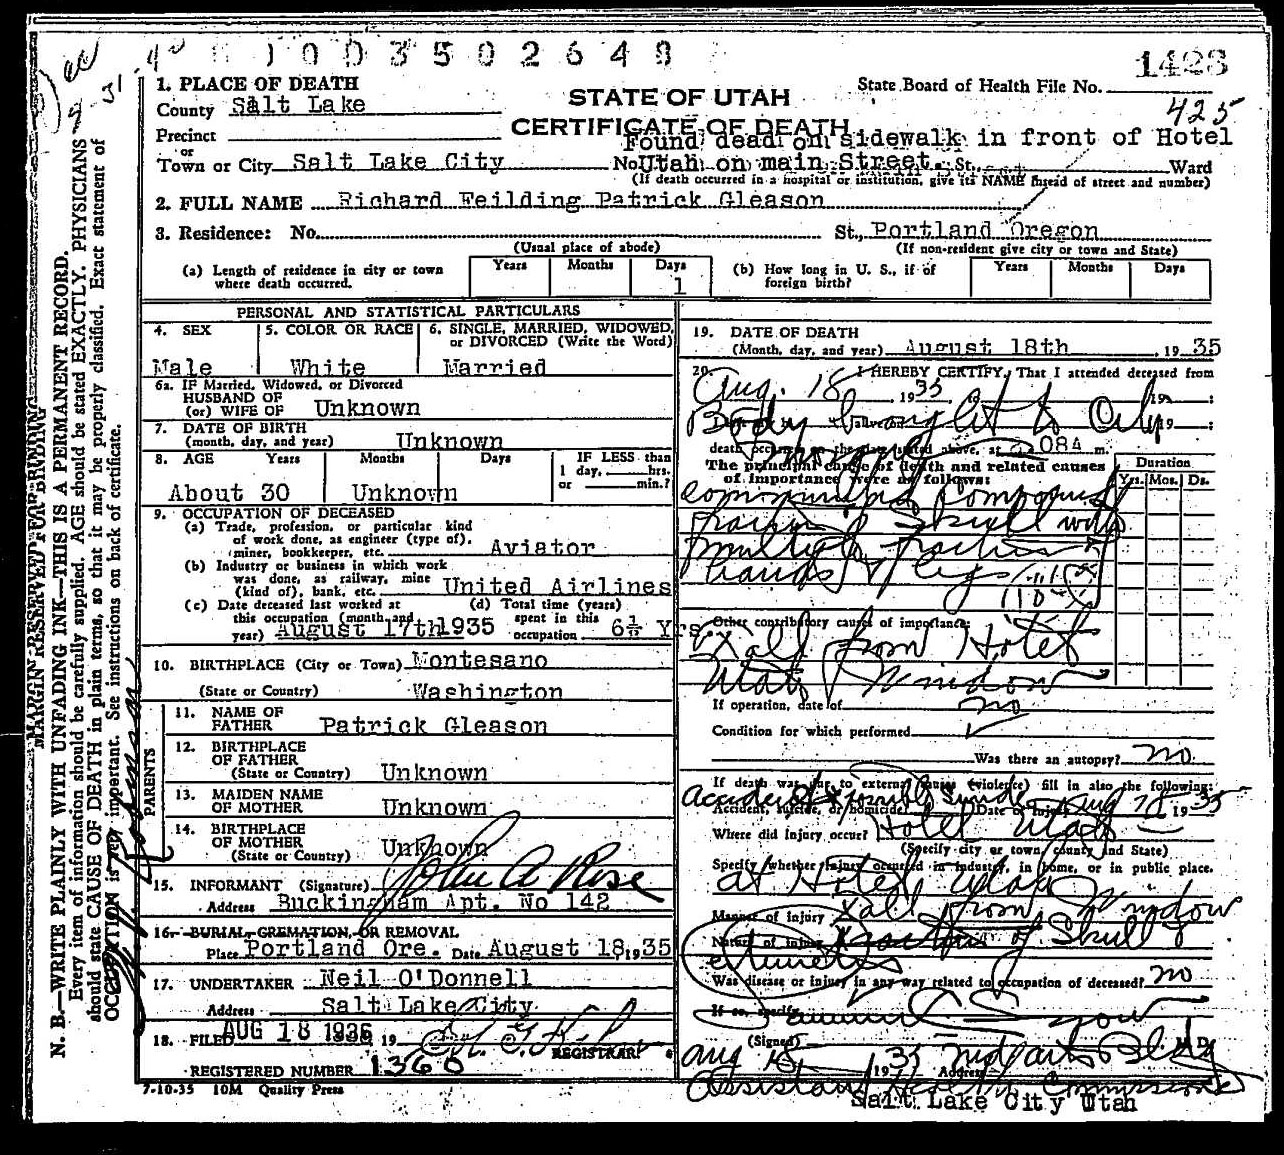 1003502648
1423
1. PLACE OF DEATH
State Board of Health File No.
County Salt Lake
STATE OF UTAH
425
CERTIFICATE OF DEATH
Precinct
Found dead on sidewalk in front of Hotel
or
Town or City Salt Lake City No. Utah on main Street. St., Ward
(If death occurred in a hospital or institution, give its NAME instead of street and number)
2. FULL NAME Richard Feilding Patrick Gleason
3. Residence: No. St., Portland Oregon
(Usual place of abode) (If non-resident give city or town and State)
(a) Length of residence in city or town where death occurred. Years Months Days 1
(b) How long in U. S., if of foreign birth? Years Months Days
PERSONAL AND STATISTICAL PARTICULARS
4. SEX 5. COLOR OR RACE 6. SINGLE, MARRIED, WIDOWED, or DIVORCED (Write the Word)
Male White Married
6a. IF Married, Widowed, or Divorced
HUSBAND OF
(or) WIFE OF Unknown
7. DATE OF BIRTH
(month, day, and year) Unknown
8. AGE Years Months Days IF LESS than
1 day, hrs.
or min.?
About 30 Unknown
9. OCCUPATION OF DECEASED
(a) Trade, profession, or particular kind
of work done, as engineer (type of),
miner, bookkeeper, etc. Aviator
(b) Industry or business in which work
was done, as railway, mine
(kind of), bank, etc. United Airlines
(c) Date deceased last worked at
this occupation (month and
year) August 17th 1935
(d) Total time (years)
spent in this
occupation 6½ Yrs.
10. BIRTHPLACE (City or Town) Montesano
(State or Country) Washington
PARENTS
11. NAME OF
FATHER Patrick Gleason
12. BIRTHPLACE
OF FATHER
(State or Country) Unknown
13. MAIDEN NAME
OF MOTHER Unknown
14. BIRTHPLACE
OF MOTHER
(State or Country) Unknown
15. INFORMANT (Signature) John A Rose
Address Buckingham Apt. No 142
16. BURIAL, CREMATION, OR REMOVAL
Place Portland Ore. Date August 18, 1935
17. UNDERTAKER Neil O'Donnell
Address Salt Lake City
18. FILED AUG 18 1935 19
REGISTRAR
REGISTERED NUMBER 1360
7-10-35 10M Quality Press
19. DATE OF DEATH
(Month, day, and year) August 18th, 1935
20. I HEREBY CERTIFY, That I attended deceased from
Aug. 18, 1935
Body brought to City
death occurred on the date stated above, at 08A m.
The principal cause of death and related causes
of importance were as follows:
Duration
Yrs. Mos. Ds.
Compound
Skull with
legs
Other contributory causes of importance:
Fall from Hotel
Utah Window
If operation, date of no
Condition for which performed
Was there an autopsy? no
If death was due to external cause (violence) fill in also the following:
Accident, suicide, or homicide Date of Injury Aug 18 1935
Where did injury occur? Hotel Utah
(Specify city or town, county and State)
Specify whether injury occurred in industry, in home, or in public place.
at Hotel Utah
Manner of injury Fall from Window
Nature of injury Fracture of Skull &
Was disease or injury in any way related to occupation of deceased? no
If so, specify
(Signed) M. D.
Aug 18 1935 Address
Assistant Health Commissioner
Salt Lake City Utah
MARGIN RESERVED FOR BINDING
N. B.—WRITE PLAINLY WITH UNFADING INK—THIS IS A PERMANENT RECORD.
Every item of information should be carefully supplied. AGE should be stated EXACTLY. PHYSICIANS
should state CAUSE OF DEATH in plain terms, so that it may be properly classified. Exact statement of
OCCUPATION is very important. See instructions on back of certificate.